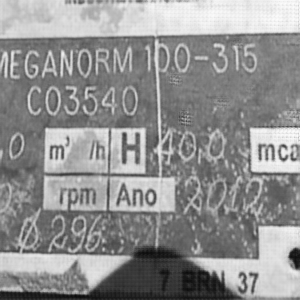 MEGANORM 100-315
C03540
,0 m³ /h H 40,0 mca
0 rpm Ano 2012
Ø 296
7 BRN 37